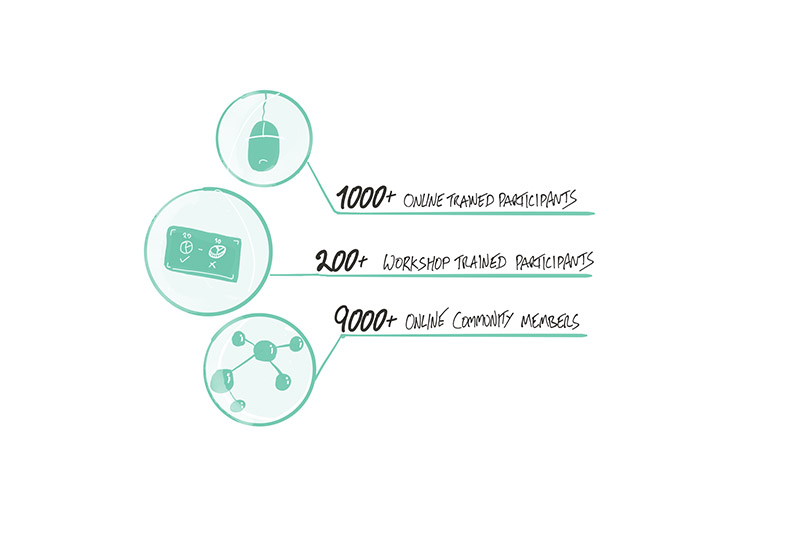 1000+ ONLINE TRAINED PARTICIPANTS
2D 3D
200+ WORKSHOP TRAINED PARTICIPANTS
9000+ ONLINE COMMUNITY MEMBERS